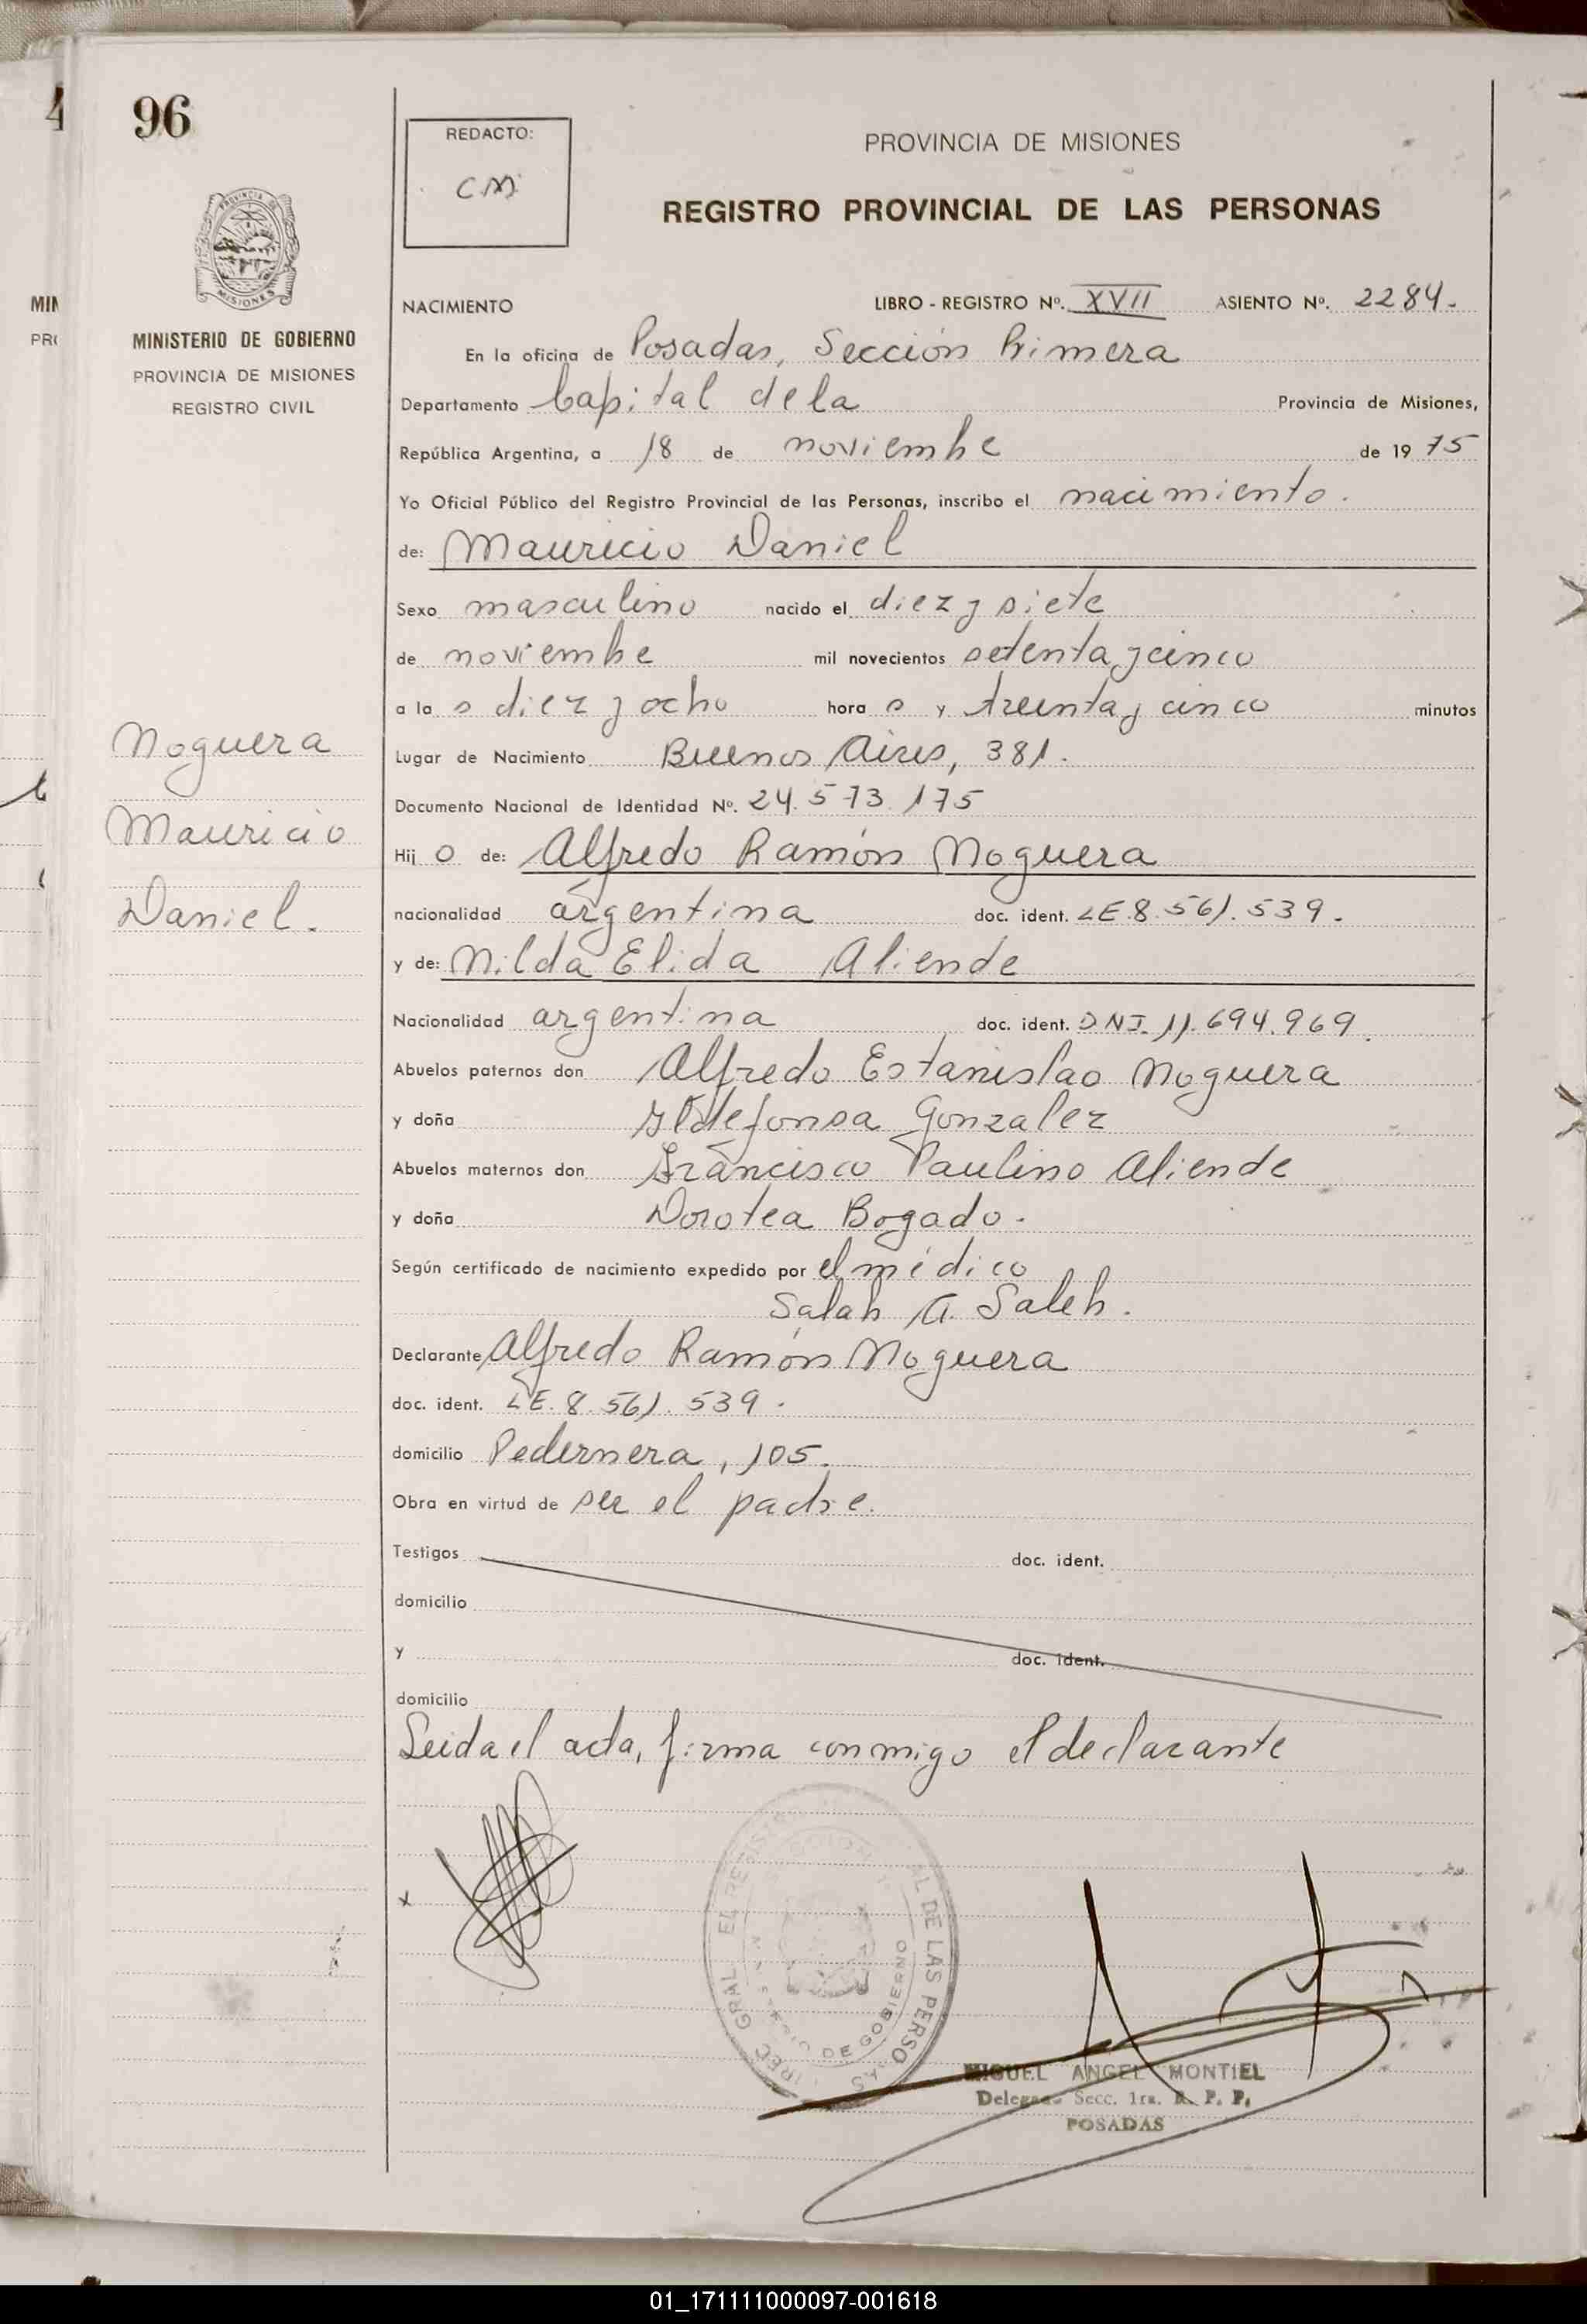 96
REDACTO:
CM
PROVINCIA DE MISIONES
REGISTRO PROVINCIAL DE LAS PERSONAS
PROVINCIA DE
MISIONES
MINISTERIO DE GOBIERNO
PROVINCIA DE MISIONES
REGISTRO CIVIL
MIN
PR
NACIMIENTO LIBRO - REGISTRO Nº. XVII ASIENTO Nº. 2284.
En la oficina de Posadas, Sección Primera
Departamento Capital de la Provincia de Misiones,
República Argentina, a 18 de noviembre de 1975
Yo Oficial Público del Registro Provincial de las Personas, inscribo el nacimiento.
de: Mauricio Daniel
Sexo masculino nacido el diez y siete
de noviembre mil novecientos setenta y cinco
a la s diez y ocho hora s y treinta y cinco minutos
Lugar de Nacimiento Buenos Aires, 381.
Documento Nacional de Identidad Nº. 24.573.175
Hij o de: Alfredo Ramón Noguera
nacionalidad argentina doc. ident. LE.8.561.539.
y de: Nilda Elida Aliende
Nacionalidad argentina doc. ident. DNI. 11.694.969.
Abuelos paternos don Alfredo Estanislao Noguera
y doña Ildefonsa Gonzalez
Abuelos maternos don Francisco Paulino Aliende
y doña Dorotea Bogado.
Según certificado de nacimiento expedido por el médico
Salah A. Saleh.
Declarante Alfredo Ramón Noguera
doc. ident. LE.8.561.539.
domicilio Pedernera, 105.
Obra en virtud de ser el padre.
Testigos doc. ident.
domicilio
y doc. ident.
domicilio
Leida el acta, firma conmigo el declarante
Noguera
Mauricio
Daniel.
x
DE LAS PERSO
DE GOBIERNO
MIGUEL ANGEL MONTIEL
Delegado Secc. 1ra. R. P. P.
POSADAS
01_171111000097-001618